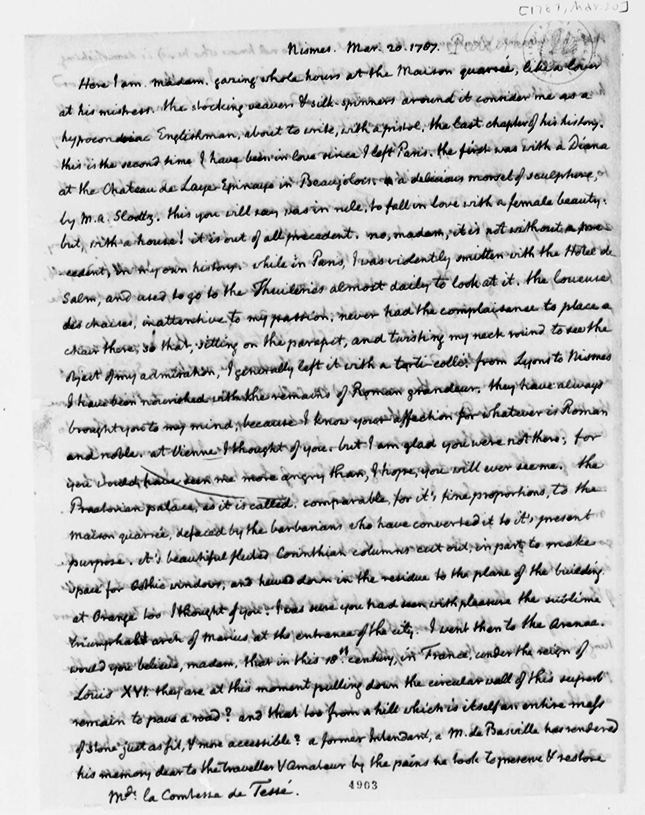 [1787, Mar. 20]
Nismes. Mar. 20. 1787.
Here I am, madam, gazing whole hours at the Maison quarrée, like a lover
at his mistress. the stocking weavers & silk spinners around it consider me as a
hypocondriac Englishman, about to write, with a pistol, the last chapter of his history.
this is the second time I have been in love since I left Paris. the first was with a Diana
at the Chateau de Laye Epinaye in Beaujolois, a delicious morsel of sculpture,
by M. A. Slodtz. this you will say was in rule, to fall in love with a female beauty:
but, with a house! it is out of all precedent. no, madam, it is not without a pre-
cedent, in my own history. while in Paris, I was violently smitten with the Hotel de
Salm, and used to go to the Thuileries almost daily to look at it. the loueuse
des chaises, inattentive to my passion, never had the complaisance to place a
chair there; so that, sitting on the parapet, and twisting my neck round to see the
object of my admiration, I generally left it with a torti-colli. from Lyons to Nismes
I have been nourished with the remains of Roman grandeur. they have always
brought you to my mind, because I know your affection for whatever is Roman
and noble. at Vienne I thought of you. but I am glad you were not there; for
you would have seen me more angry than, I hope, you will ever see me. the
Praetorian palace, as it is called, comparable, for it's fine proportions, to the
Maison quarrée, defaced by the barbarians who have converted it to it's present
purpose. it's beautiful fluted Corinthian columns cut out, in part, to make
space for Gothic windows, and hewed down in the residue to the plane of the building.
at Orange too I thought of you. I was sure you had seen with pleasure the sublime
triumphal arch of Marius at the entrance of the city. I went then to the Arenae.
would you believe, madam, that in this 18th century, in France, under the reign of
Louis XVI. they are at this moment pulling down the circular wall of this superb
remain to pave a road? and that too from a hill which is itself an entire mass
of stone just as fit, & more accessible? a former Intendant, a M. de Basville has rendered
his memory dear to the traveller & Amateur by the pains he took to preserve & restore
Mde. la Comtesse de Tessé.
4903